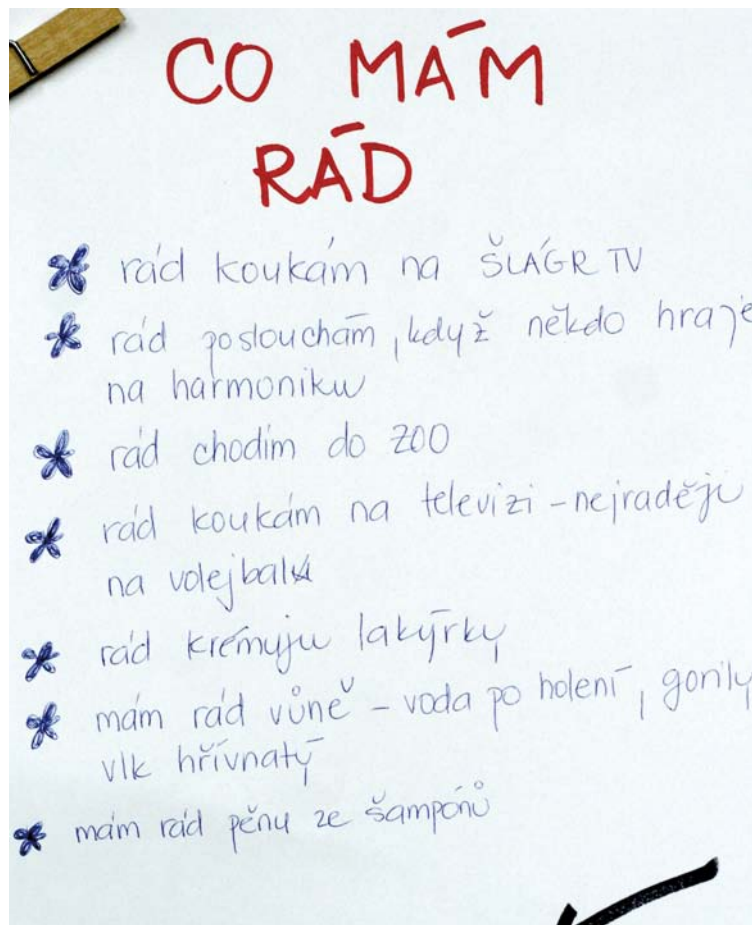 CO MÁM
RÁD
rád koukám na ŠLÁGR TV
rád poslouchám, když někdo hraje
na harmoniku
rád chodím do ZOO
rád koukám na televizi - nejraději
na volejbal
rád krémuju lakýrky
mám rád vůně - voda po holení, gorily,
vlk hřívnatý
mám rád pěnu ze šampónů